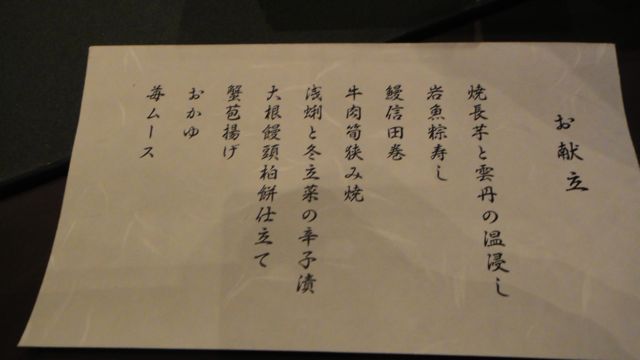 お献立
焼長芋と雲丹の温浸し
岩魚粽寿し
鰻信田巻
牛肉筍挟み焼
浅蜊と冬立菜の辛子漬
大根饅頭柏餅仕立て
蟹苞揚げ
おかゆ
苺ムース